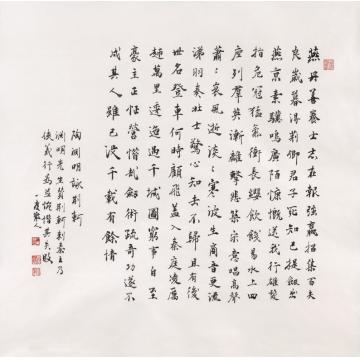 燕丹善養士志在報強嬴招集百夫
良歲暮得荊卿君子死知己提劍出
燕京素驥鳴廣陌慷慨送我行雄髮
指危冠猛氣衝長纓飲餞易水上四
座列群英漸離擊悲筑宋意唱高聲
蕭〻哀風逝淡〻寒波生商音更流
涕羽奏壯士驚心知去不歸且有後
世名登車何時顧飛蓋入秦庭凌厲
越萬里逶迤過千城圖窮事自至
豪主正怔營惜哉劍術疏奇功遂不
成其人雖已沒千載有餘情
陶淵明詠荊軻
淵明先生贊荊軻刺秦王乃
俠義行為並惋惜其失敗